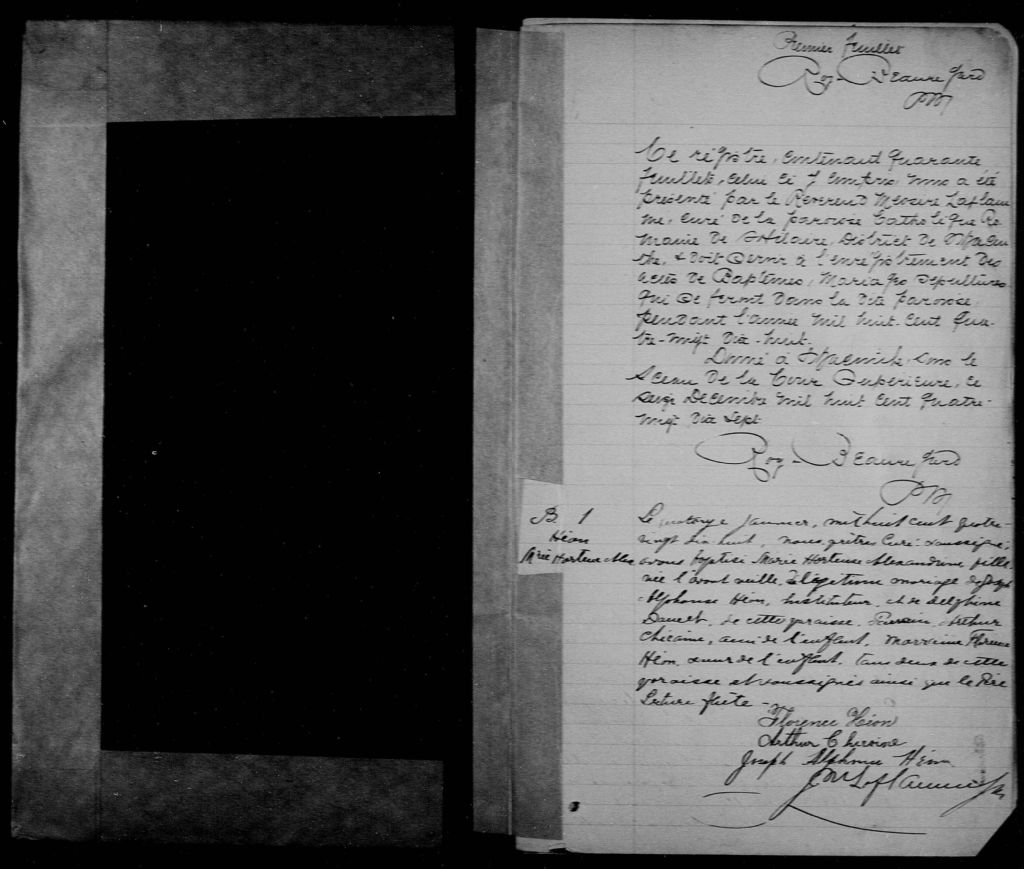 Premier feuillet
Roy-Beauregard
Ce régistre, contenant quarante
feuillets, celui ci y compris, nous a été
présenté par le Reverend Messire Laflam
me, curé de la paroisse Catholique Ro
maine de St Hilaire, District de
& doit servir à l'enrégistrement des
actes de Baptêmes, Mariages Sépultures
qui se feront dans la dite paroisse,
pendant l'année mil huit-cent qua-
tre-vingt dix-huit.
Donné à sous le
Sceau de la Cour Supérieure, ce
Décembre mil huit cent quatre-
vingt dix sept
Roy-Beauregard
B. 1
Héon
Mrie Hortense Alex
Le quatorze janvier, mil huit cent quatre-
vingt dix huit, nous, prêtre Curé soussigné,
avons baptisé Marie Hortense Alexandrine fille
née l'avant veille, légitime mariage de Joseph
Alphonse Héon, Instituteur, et de Delphine
de cette paroisse. Parrain, Arthur
ami de l'enfant, marraine Florence
Héon soeur de l'enfant, tous deux de cette
paroisse et soussignés ainsi que le Père
Lecture faite -
Florence Héon
Arthur
Joseph Alphonse Héon
J M Laflamme